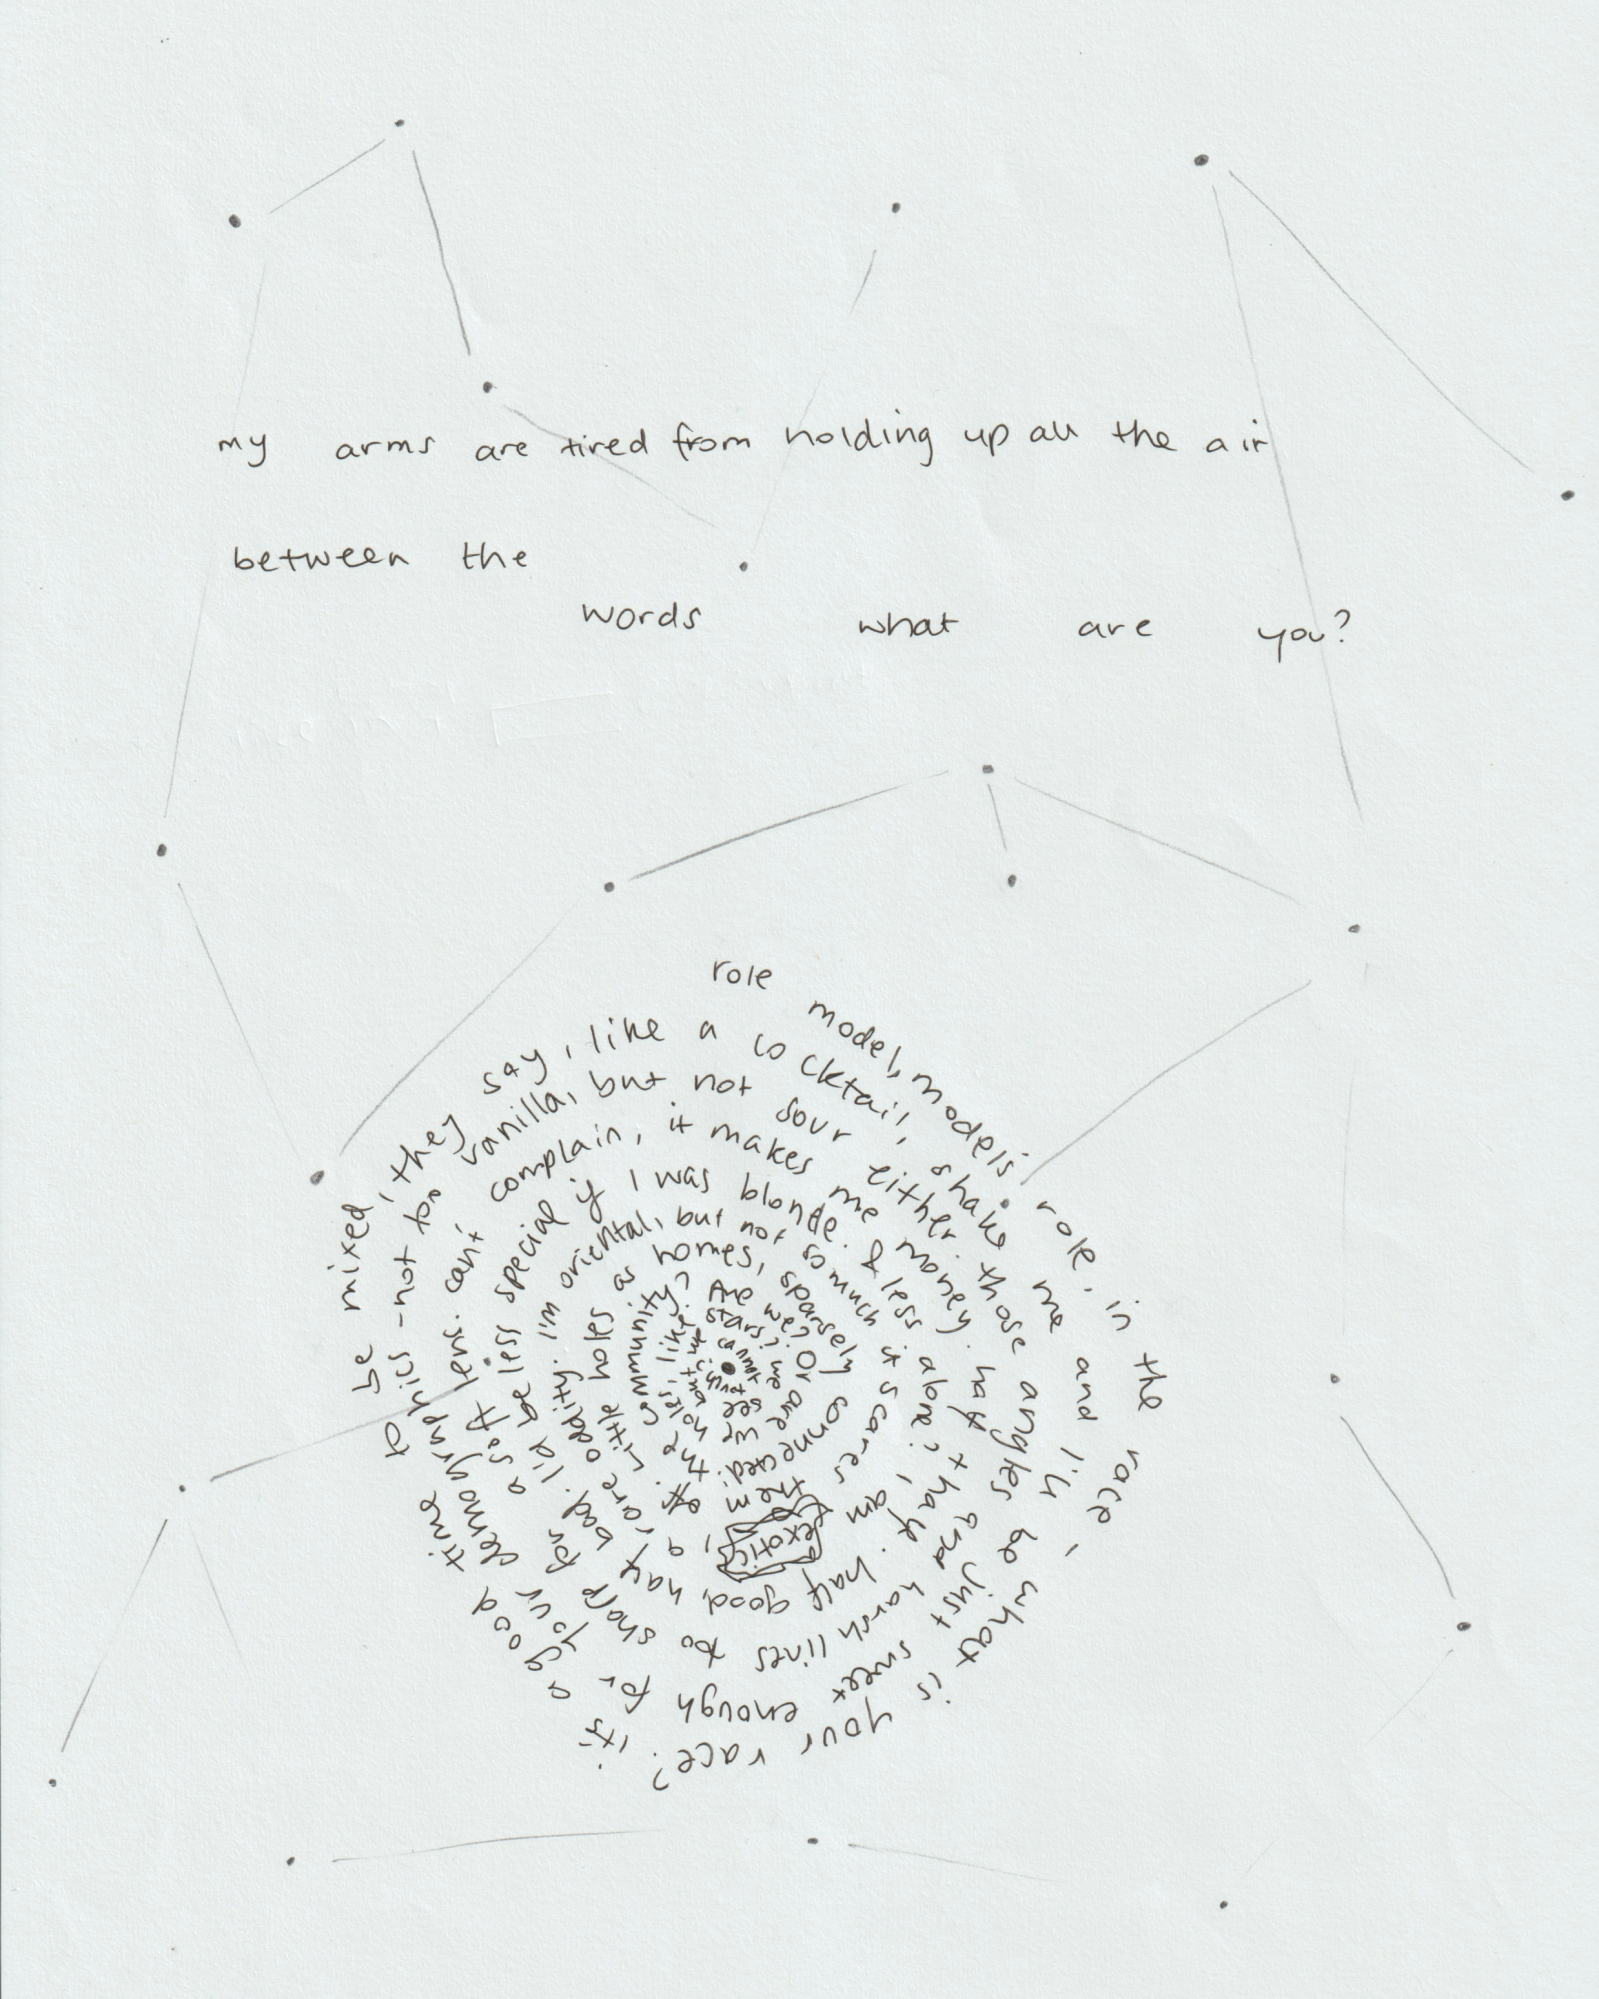 my arms are tired from holding up all the air
between the
words what are you?
role model, models role, in the race, what is your race? it's a good time to be mixed, they say, like a cocktail, shake me and i'll be just sweet enough for your demographics - not too vanilla, but not sour either. those angles and harsh lines too sharp for a soft lens. can't complain, it makes me money. half + half. half good, half bad. i'd be less special if I was blonde. & less alone? i am exotic, a rare oddity. I'm oriental, but not so much it scares them off. little holes as homes, sparsely connected. the community? Are we? Or are we holes, like stars? we cannot see